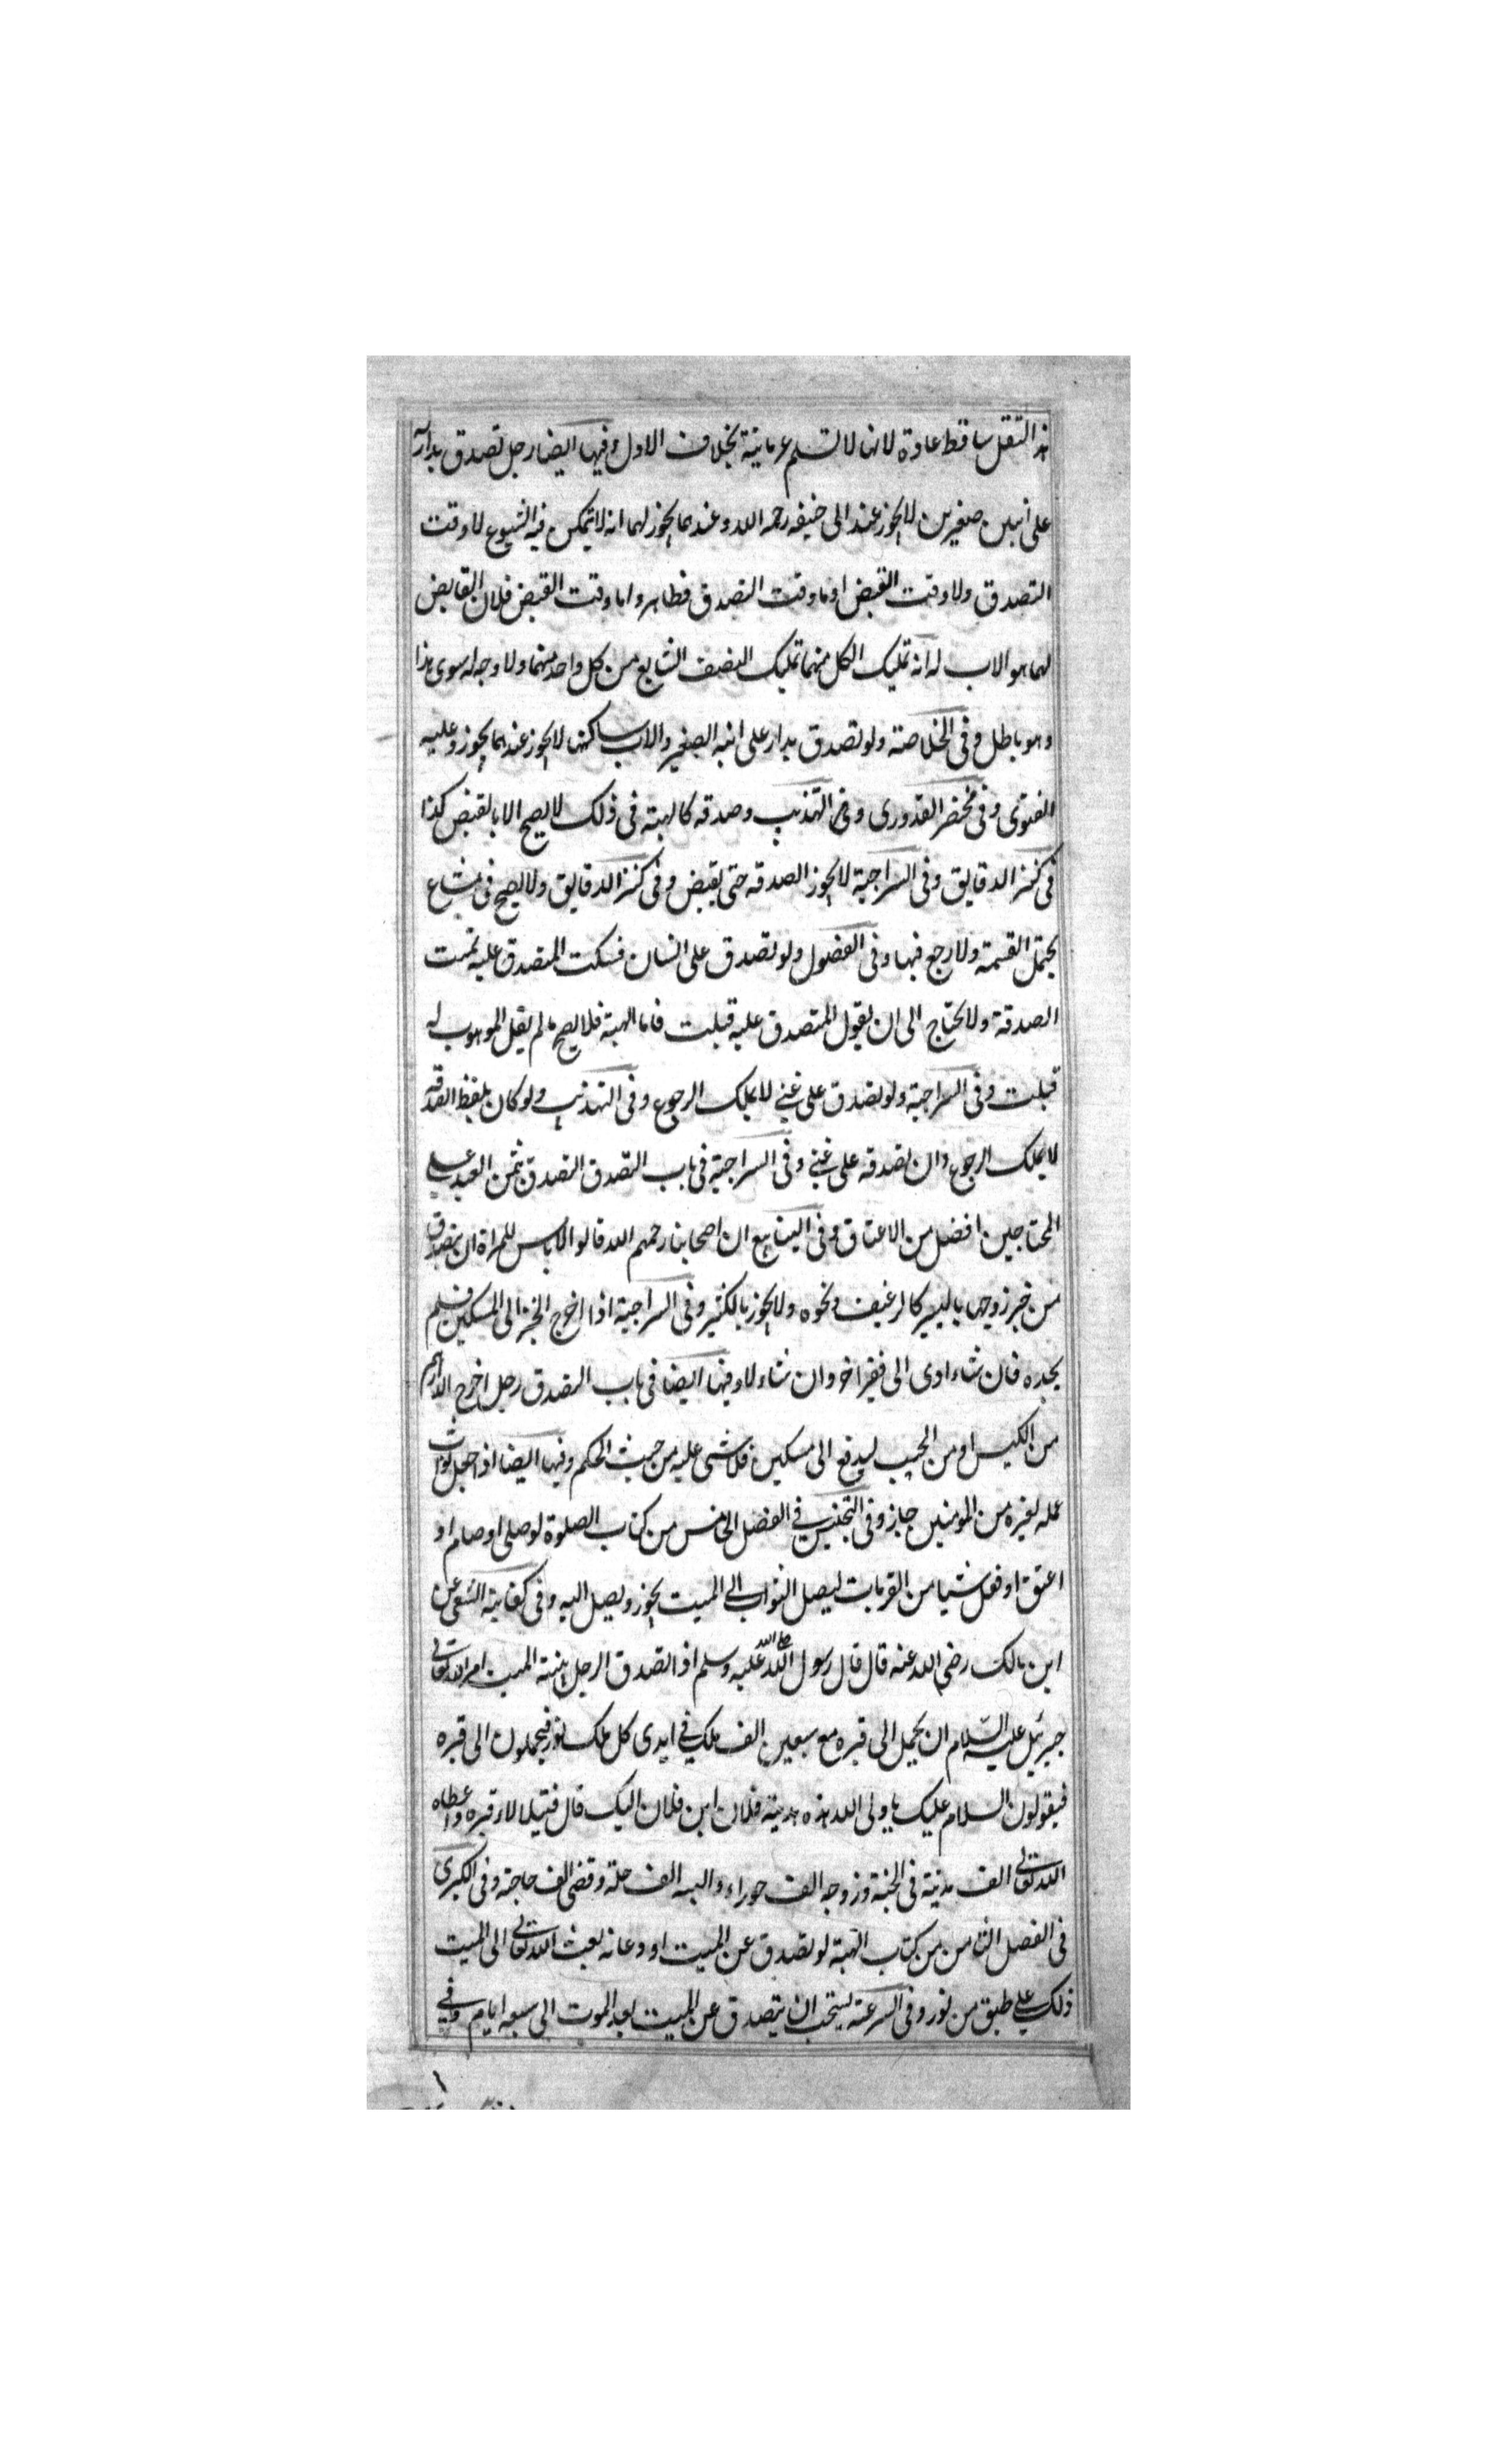 هذا التنقل ساقط عادة لانها لا تسلم عريانة بخلاف الاول وفيها ايضا رجل تصدق بداره
على ابنين صغيرين لا يجوز عند ابى حنيفه رحمه الله وعندهما يجوز لهما انه لا يتمكن فيه الشيوع لا وقت
التصدق ولا وقت القبض اما وقت التصدق فظاهر واما وقت القبض فلان القابض
لهما هو الاب له انه تمليك الكل منهما تمليك النصف الشايع من كل واحد منهما ولا وجه له سوى هذا
وهو باطل وفى الخلاصة ولو تصدق بدار على ابنه الصغير والاب ساكنها لا يجوز عندهما يجوز وعليه
الفتوى وفى مختصر القدورى وفى التهذيب وصدقه كالهبته فى ذلك لا يصح الا بالقبض كذا
فى كنز الدقايق وفى السراجية لا يجوز الصدقه حتى يقبض وفى كنز الدقايق ولا يصح فى مشاع
يحتمل القسمة ولا رجع فيها وفى الفصول ولو تصدق على انسان فسكت المتصدق عليه تمت
الصدقة ولا يحتاج الى ان يقول المتصدق عليه قبلت فاما الهبته فلا يصح ما لم يقل الموهوب له
قبلت وفى السراجية ولو تصدق على غنى لا يملك الرجوع وفى التهذيب ولو كان بلفظ الصدقه
لا يملك الرجوع وان تصدقه على غنى وفى السراجية فى باب التصدق التصدق بثمن العبد على
المحتاجين افضل من الاعتاق وفى الينابيع ان اصحابنا رحمهم الله قالوا لا باس للمراة ان يتصدق
من خبز زوجها باليسير كالرغيف ونحوه ولا يجوز بالكثير وفى السراجية اذا اخرج الخبز الى المسكين فلم
يجده فان شاء ادى الى فقير اخر وان شاء لا وفيها ايضا فى باب التصدق رجل اخرج الدراهم
من الكيس او من الجيب ليدفع الى مسكين فلا شى عليه من حيث الحكم وفيها ايضا اذا جعل ثواب
عمله لغيره من المومنين جاز وفى التجنيس فى الفصل الخامس من كتاب الصلوة لو صلى او صام او
اعتق او فعل شيا من القربات ليصل الثواب الى الميت يجوز ويصل اليه وفى كفاية الشعبى عن
ابن مالك رضى الله عنه قال قال رسول الله صلى الله عليه وسلم اذا تصدق الرجل بنية الميت امر الله تعالى
جبرئيل عليه السلام ان يحمل الى قبره مع سبعين الف ملك فى ايدى كل ملك نور فيحملون الى قبره
فيقولون السلام عليك يا ولى الله هذه هدية فلان ابن فلان اليك قال فيتلالا قبره واعطاه
الله تعالى الف مدينة فى الجنة وزوجه الف حوراء والبسه الف حلة وقضى الف حاجة وفى الكبرى
فى الفصل الثامن من كتاب الهبة لو تصدق عن الميت او دعا له يعث الله تعالى الى الميت
ذلك على طبق من نور وفى السرعة يستحب ان يتصدق عن الميت بعد الموت الى سبعه ايام وفى